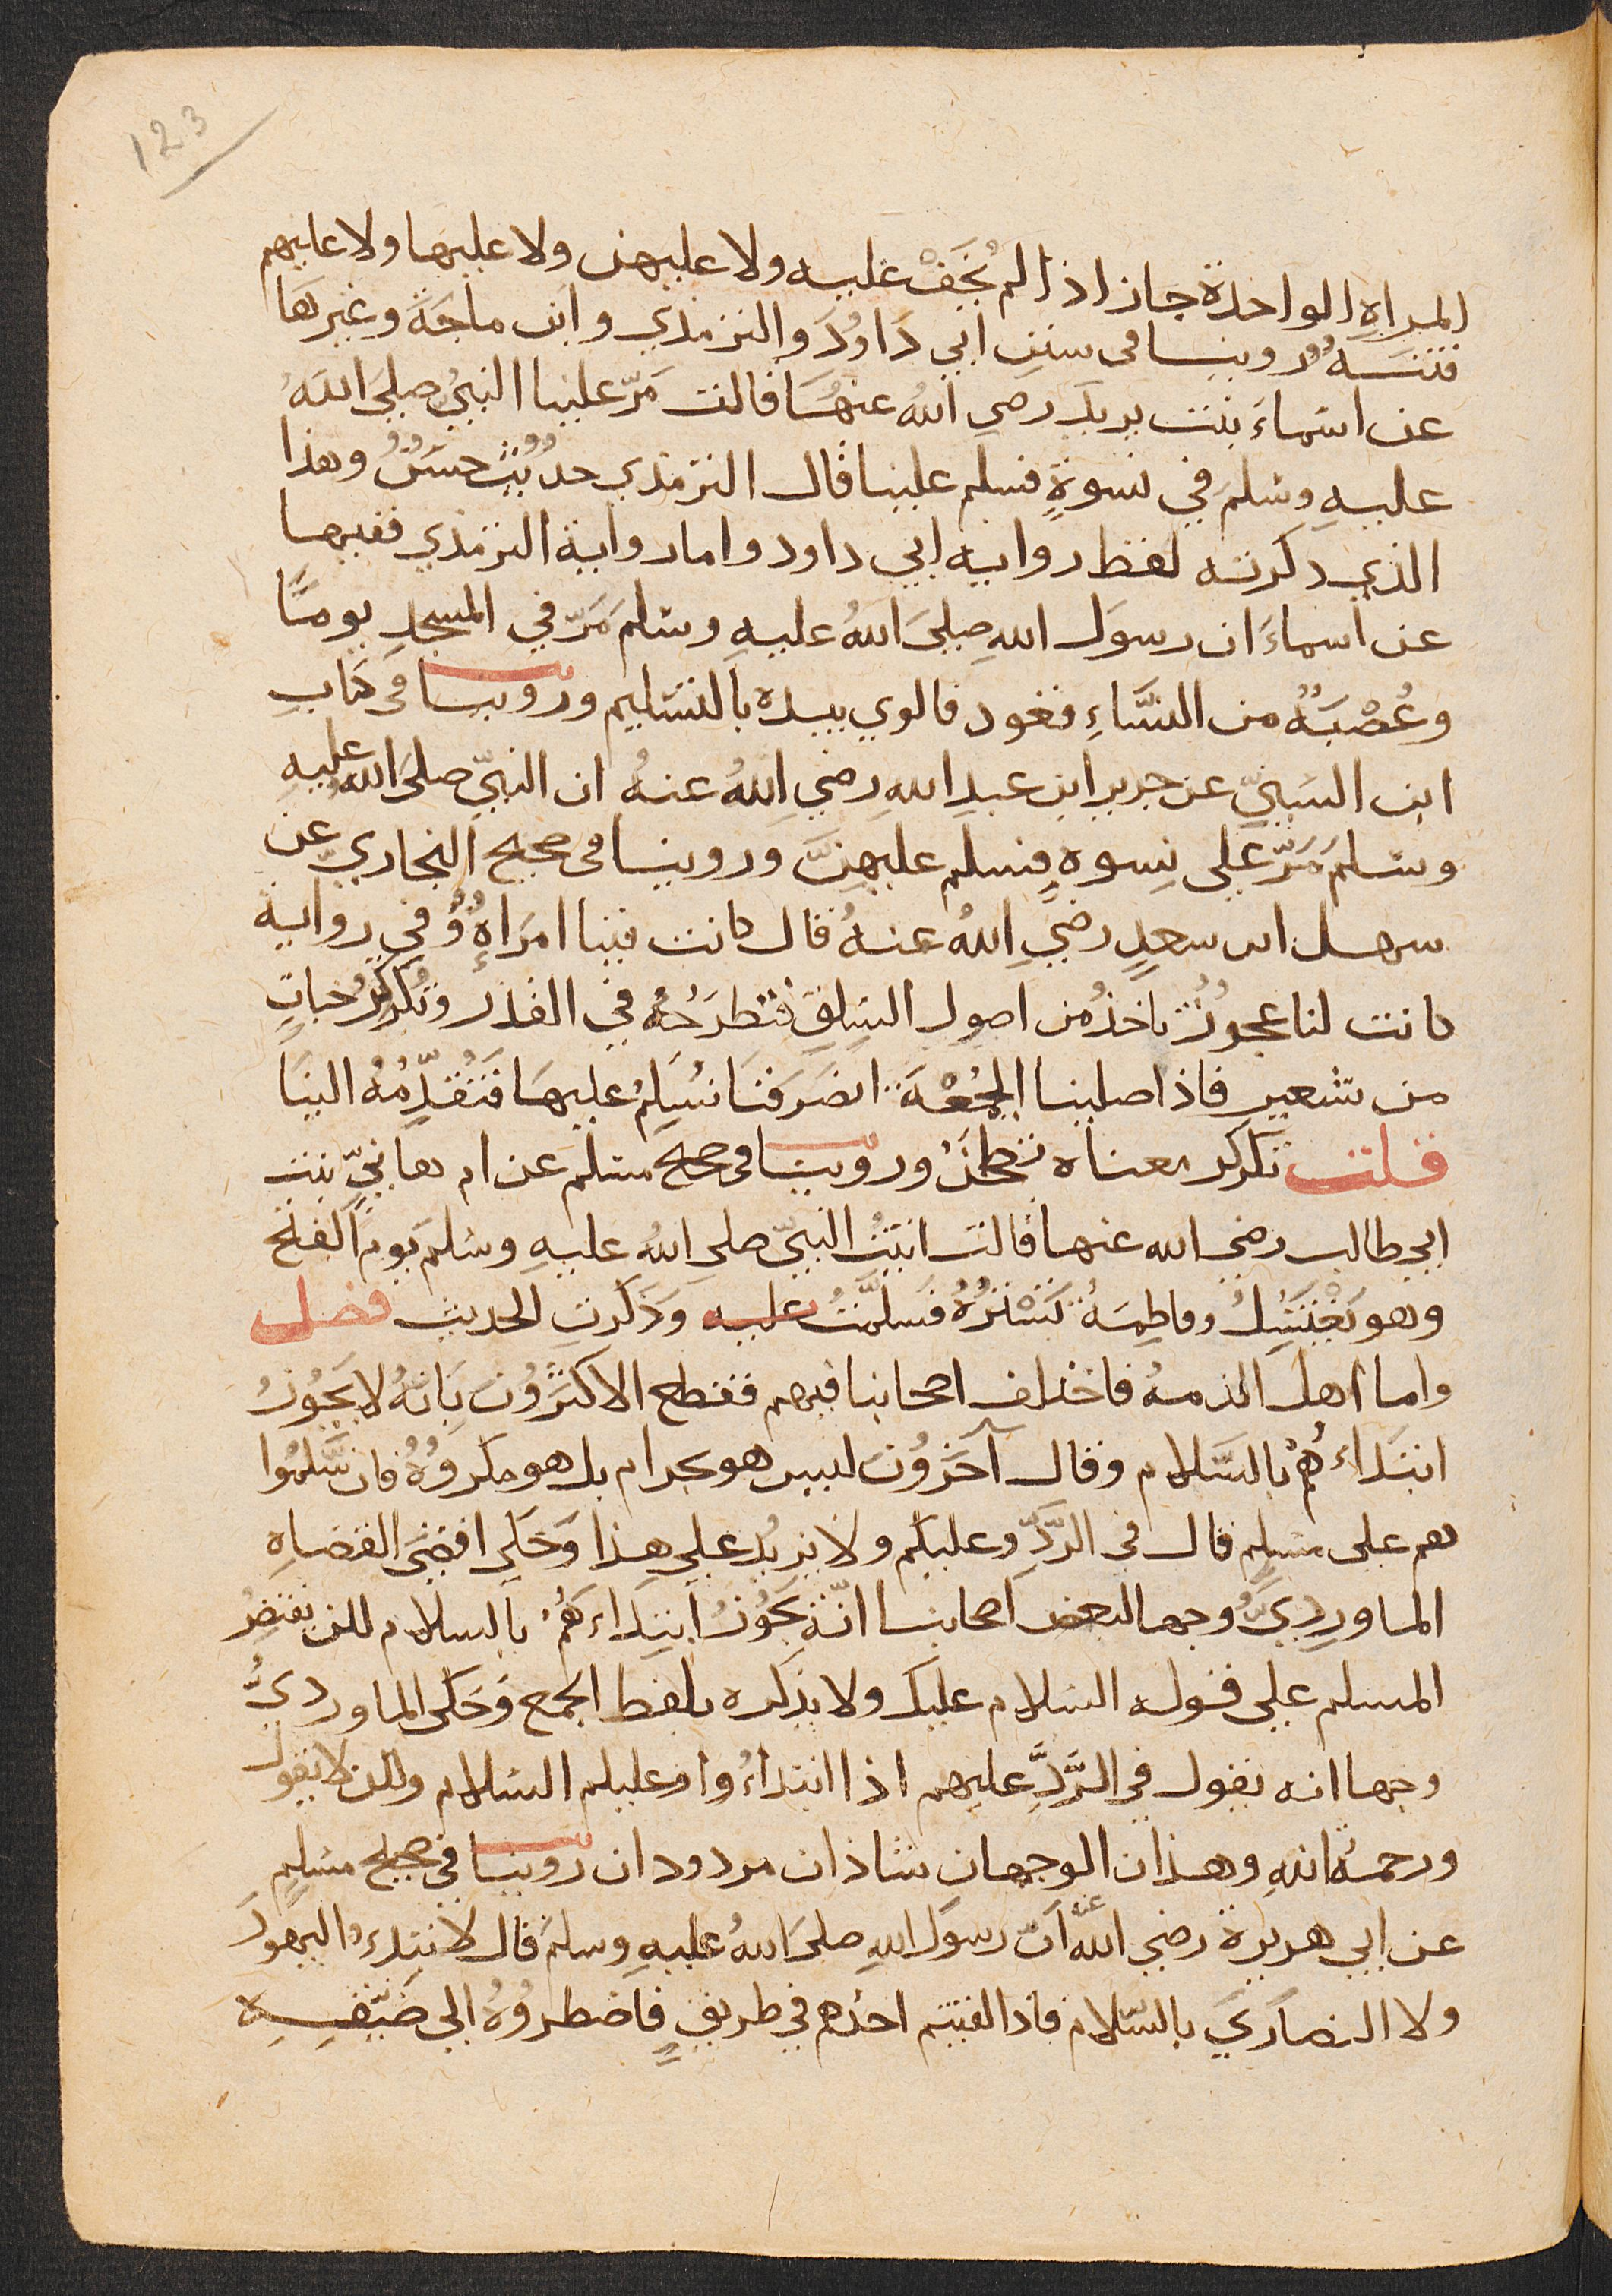 123
المراهِ الواحدة جاز اذا لم يُخَفْ عليه ولا عليهن ولا عليها ولا عليهم
فتنَةٌ روينا في سننِ ابي دَاوُدَ والترمذي وابن ماجَةَ وغيرهَا
عن اسْماءَ بنت يزيد رضي اللهُ عنهُا قالت مَرّ علينا النبيُّ صلىَ اللهُ
عليهِ وسلمَ في نسوةٍ فسلم علينا قال الترمذي حديْثٌ حسَنٌ وهذا
الذي دكرته لفظ روايه ابي داود واما رواية الترمذي ففيها
عن اسماءَ ان رسوَل اللهِ صلىَ اللهُ عليهِ وسلمَ مَرّ في المسجدِ يومًا
وعُصْبَةٌ من النسَّاءِ فعود فالوي بيده بالتسْليم وروينا في كتابِ
ابن السَنيّ عن جرير ابن عبدِ اللهِ رضي اللهُ عنهُ ان النبيّ صلىَ الله عليهِ
وسَلمَ مَرّ على نِسوهٍ فسلم عليهِنَّ وروينا في صحيح البخاريّ عن
سهل ابن سعدٍ رضيَ اللهُ عنهُ قال كانت فينا امرَاهٌ وُفي رواية
كانت لنا عجوزٌ تاخذُ من اصولِ السِلِقِ فتطرَحُهُ في القدر وتُكركِرُ حباتٍ
من شعيرٍ فاذا صلينا الجُمْعَة انصَرَفنَا نُسَلمُ عليهَا فَتُقدّمُهُ الينَا
قلت تكركر معناه تطحَنُ وروينا في صحيح مسلم عن ام هانيٍّ بنت
ابي طالب رضي الله عنها قالت اتيتُ النبيّ صلي اللهُ عليهِ وسَلمَ يومَ الفتح
وهو يَغْتَسِلُ وفاطِمَةُ تَسْتُرُهُ فسَلمَّتُ عليه وَذكَرتِ الحديث فصل
واما اهل الذمهُ فاختلف اصحابنا فيهم فقطع الاكثَرُونَ بِانهُ لا يَجُوزُ
ابتدَاءُهُمْ بالسَّلام وقال آخَرُون ليس هو بحرام بل هو مكرُوْهٌ فان سَّلمُوا
هم على مسْلمٍ قال في الرَّدِّ وعليكم ولا يزيدُ علي هذا وَحَكي اقضَي القضاهِ
الماوردِيُّ وجها لبعض اصحابنا انّهُ يَجُوْزُ ابتدَاءَهُمْ بالسلام لكن يقتصِرُ
المسلم علي قوله السَلام عليك ولا يذكره بلفظ الجمع وَحَكَى الماورديُّ
وجها انه يقول في الرَّدِّ عليهم اذا ابتداءُوا وعليكم السَلام ولكن لا يقول
ورحمةُ اللهِ وهذان الوجهان شاذان مردودان روينا في صحيح مسْلمٍ
عن ابي هريرة رضي اللّه عنه انَّ رسوَل اللهِ صلىَ اللهُ عليهِ وسلمَ قال لا تبدءُ اليهودَ
ولا النصاَريَ بالسَلام فاذا لقيتم احدهم في طريقٍ فاضطروْهُ الي ضَيّقِهِ